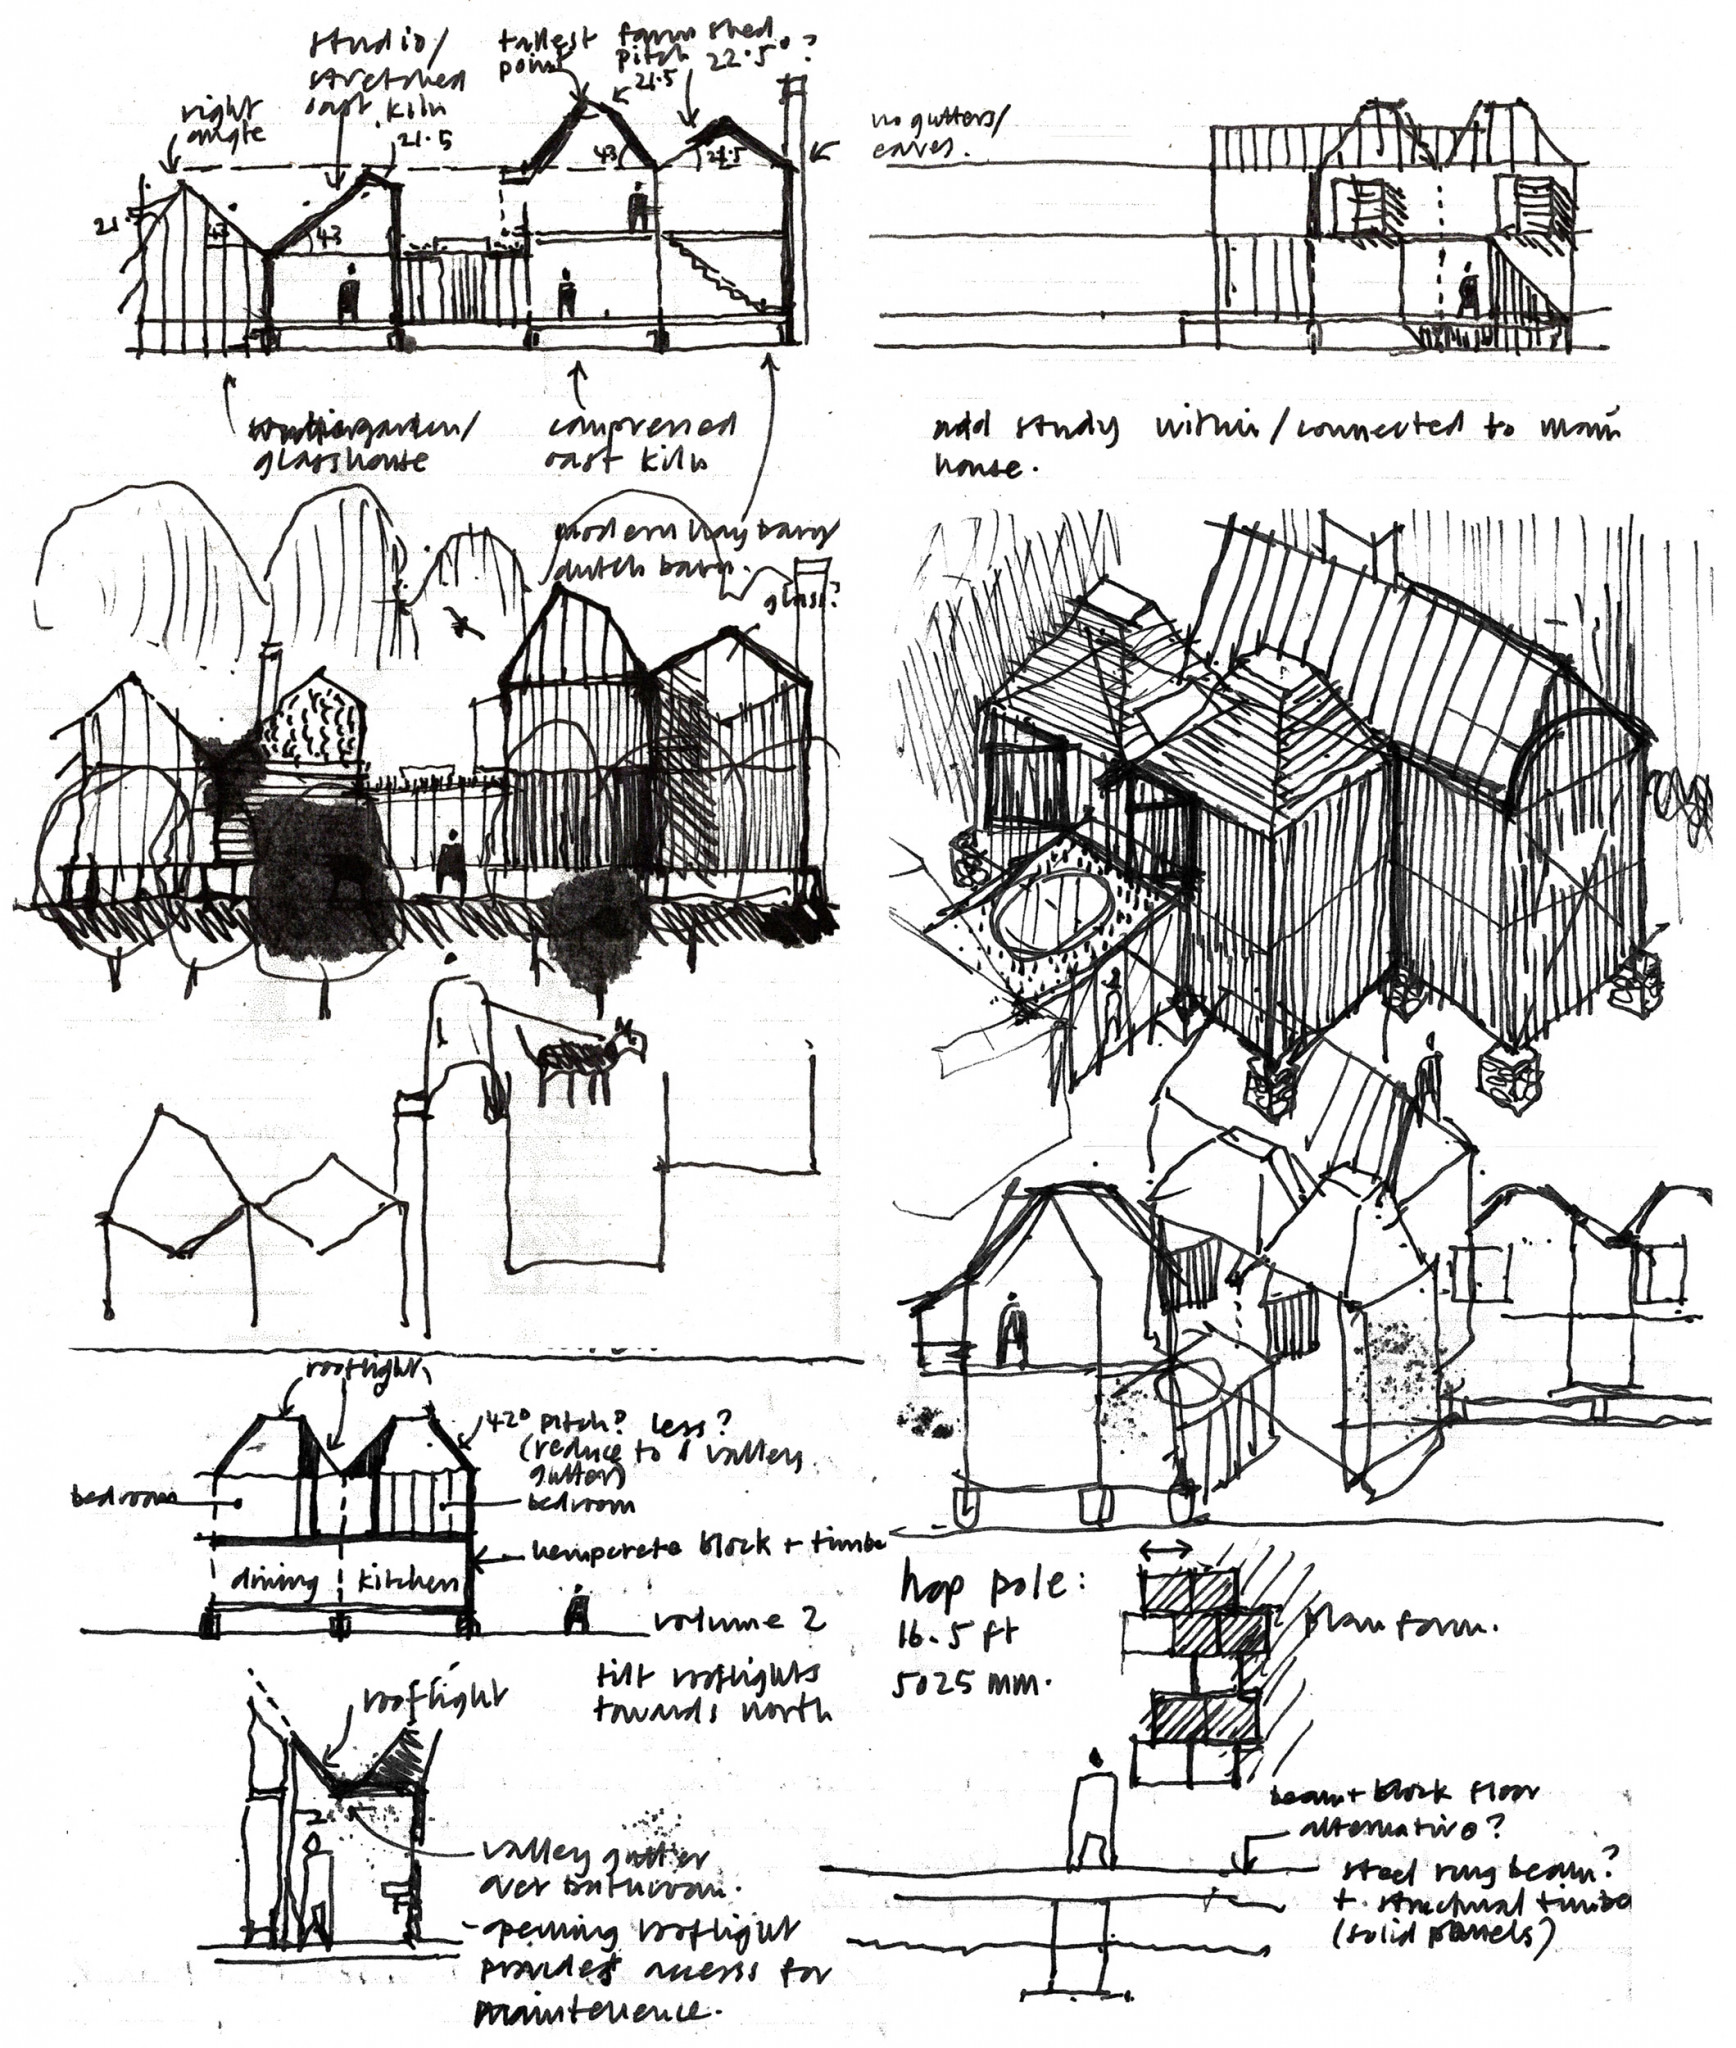 studio/
stretched
oast kiln
21.5
right
angle
tallest
point
farm shed
pitch 22.5°?
21.5
43
21.5
21.5
43
43
wintergarden/
glasshouse
compressed
oast kiln
modern hay barn/
dutch barn.
glass?
no gutters/
eaves.
add study within/connected to main
house.
rooflight
42° pitch? less?
(reduce to 1 valley
gutter)
bedroom
bedroom
hempcrete block + timber
dining
kitchen
volume 2
tilt rooflights
towards north
rooflight
valley gutter
over bathroom.
- opening rooflight
provides access for
maintenence.
hop pole:
16.5 ft
5025 mm.
plan form.
beam + block floor
alternative?
steel ring beam?
+ structural timber
(solid panels)